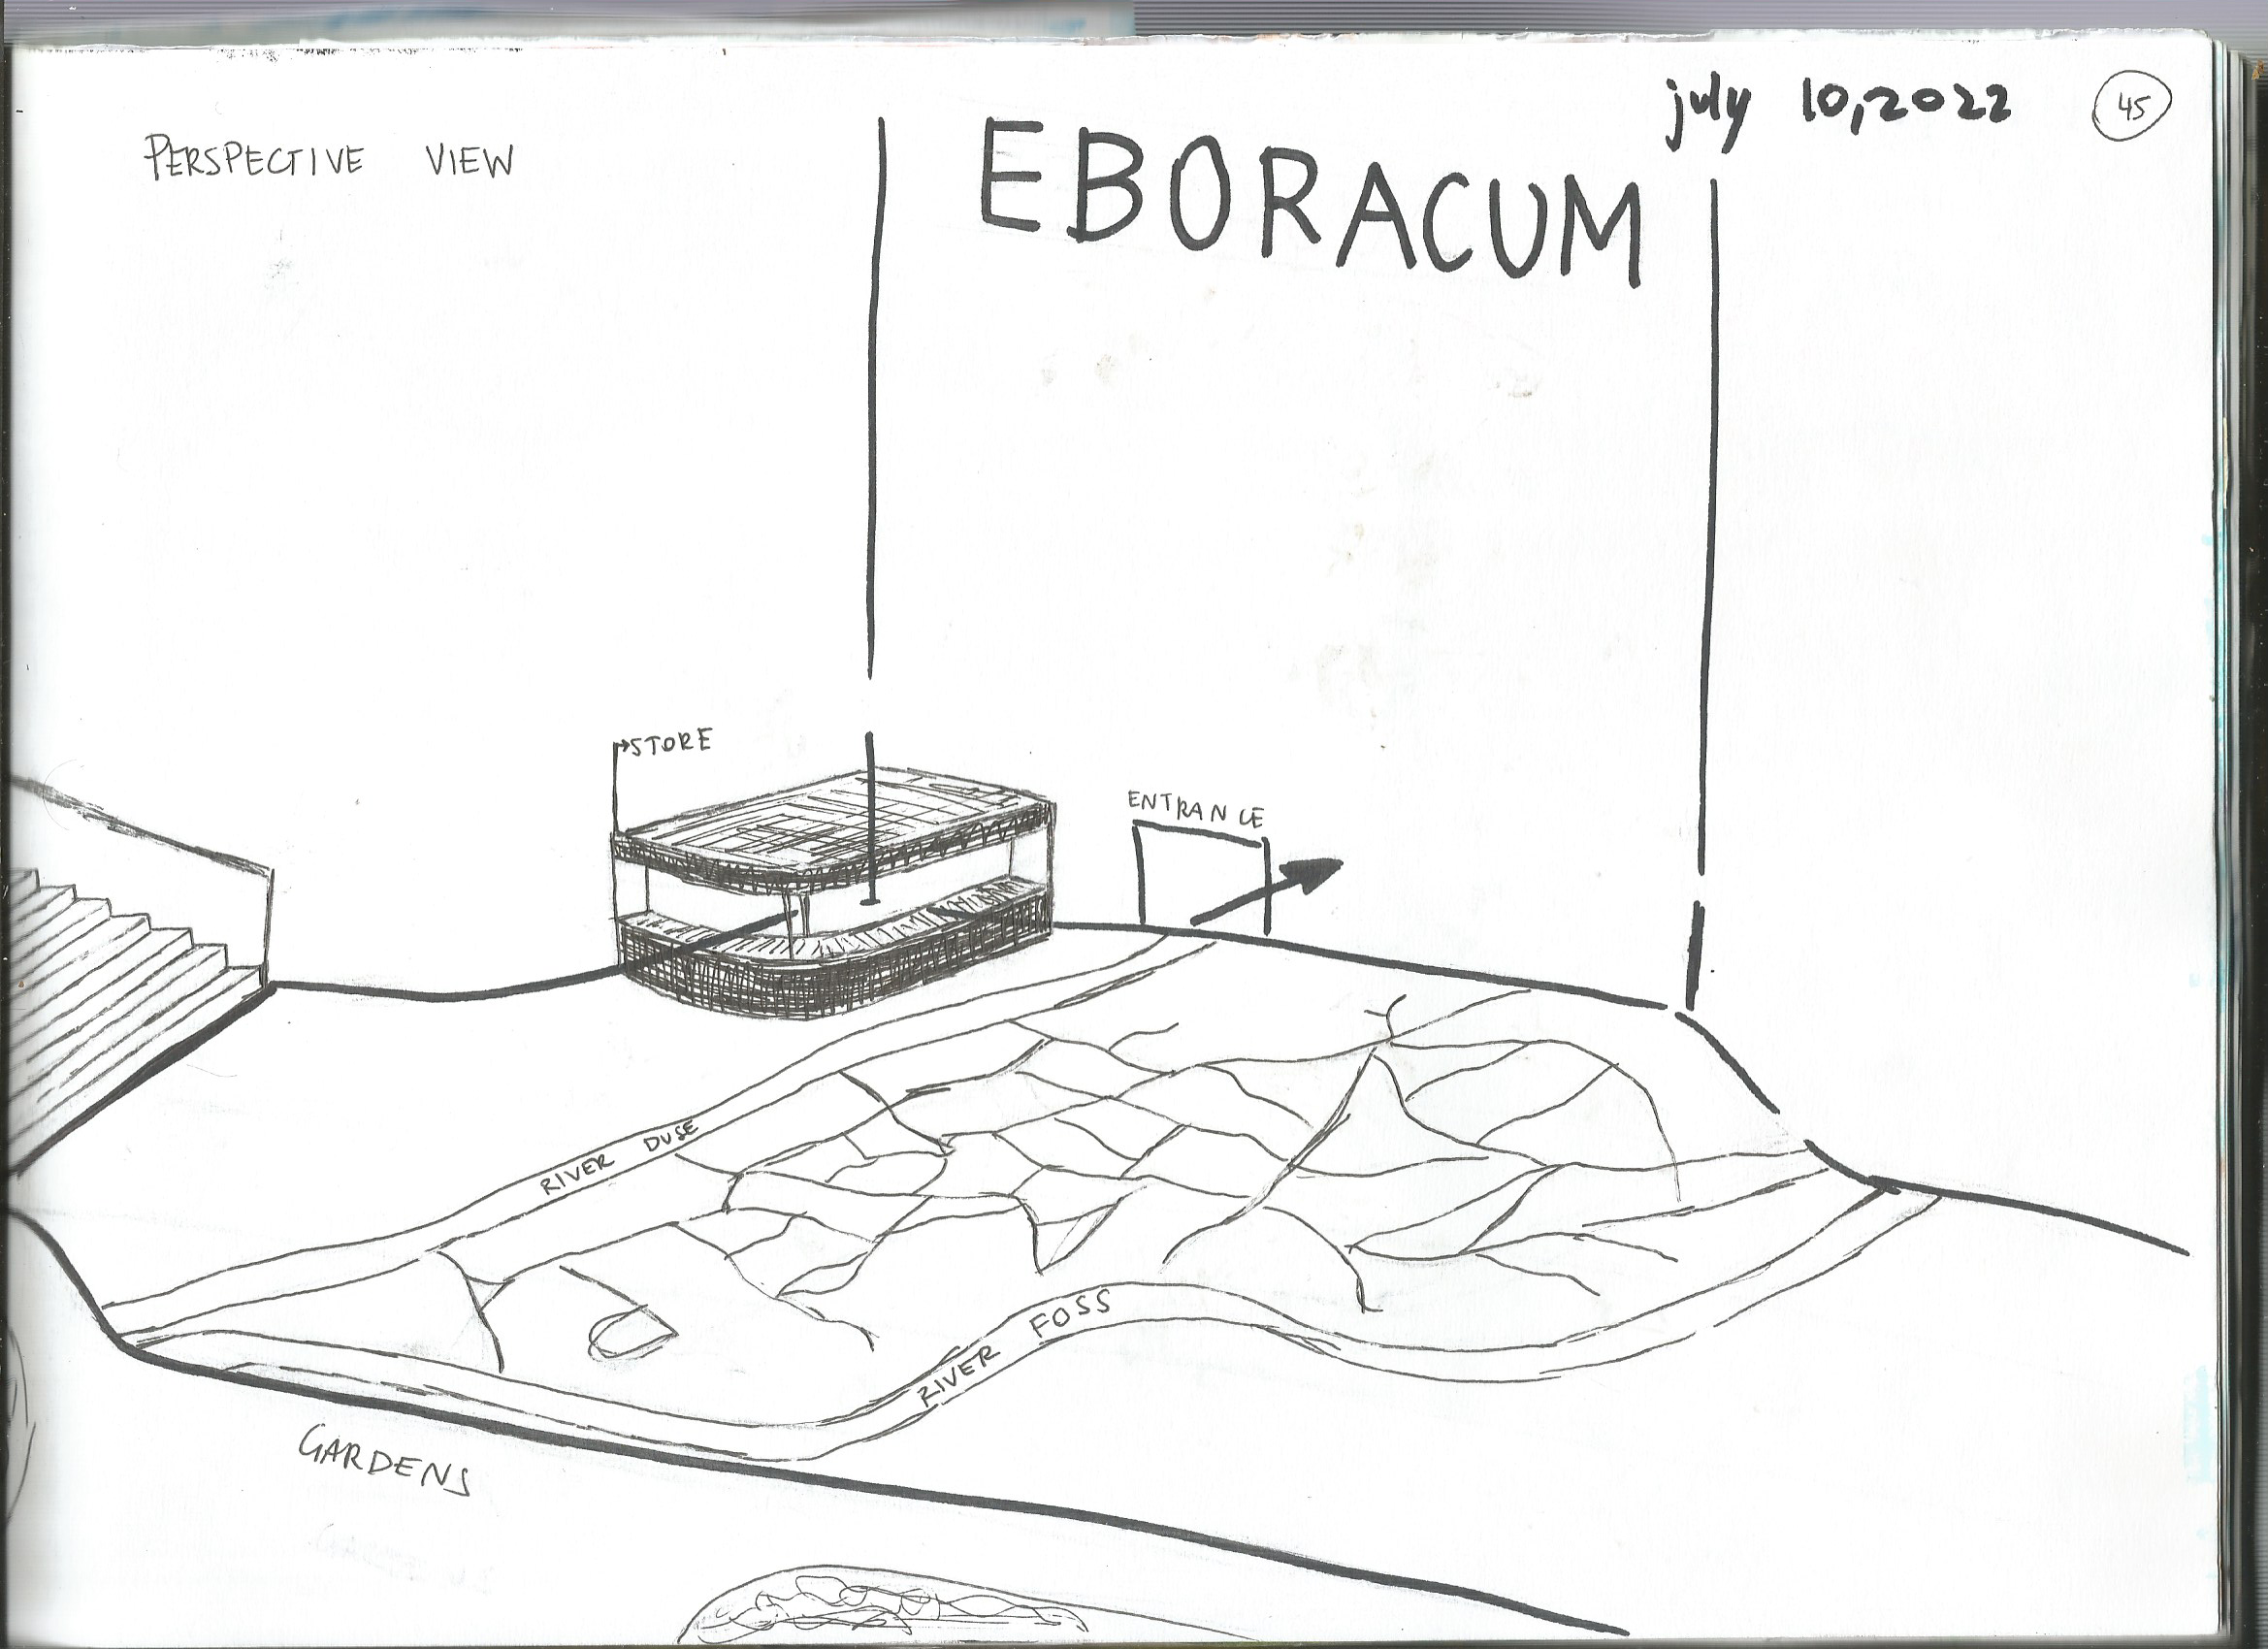 july 10, 2022
45
PERSPECTIVE VIEW
EBORACUM
STORE
ENTRANCE
RIVER OUSE
RIVER FOSS
GARDENS